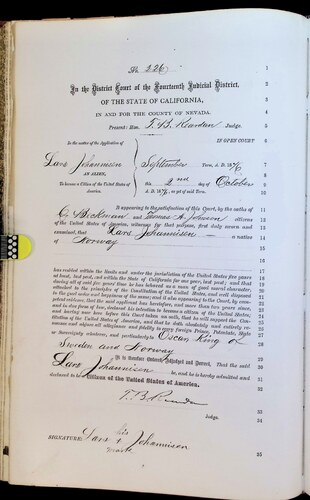 No. 226
In the District Court of the Fourteenth Judicial District,
OF THE STATE OF CALIFORNIA,
IN AND FOR THE COUNTY OF NEVADA.
Present: Hon. T. B. Reardan Judge.
In the matter of the Application of
IN OPEN COURT
Lars Johannison
AN ALIEN,
To become a Citizen of the United States of America.
September Term, A. D. 187
this 2nd day of October
A. D. 187 as yet of said Term.
It appearing to the satisfaction of this Court, by the oaths of
C. Beckman and Thomas A. Johnson citizens
of the United States of America, witnesses for that purpose, first duly sworn and
examined, that Lars Johannison a native
of Norway
has resided within the limits and under the jurisdiction of the United States five years
at least, last past, and within the State of California for one year, last past; and that
during all of said five years' time he has behaved as a man of good moral character,
attached to the principles of the Constitution of the United States, and well disposed
to the good order and happiness of the same; and it also appearing to the Court, by com-
petent evidence, that the said applicant has heretofore, and more than two years since,
and in due form of law, declared his intention to become a citizen of the United States,
and having now here before this Court taken an oath, that he will support the Con-
stitution of the United States of America, and that he doth absolutely and entirely re-
nounce and abjure all allegiance and fidelity to every foreign Prince, Potentate, State
or Sovereignty whatever, and particularly to Oscar King of
Sweden and Norway
It is therefore Ordered, Adjudged and Decreed, That the said
Lars Johannison be, and he is hereby admitted and
declared to be a Citizen of the United States of America.
T. B. Reardan
Judge.
his
SIGNATURE: Lars x Johannison
mark